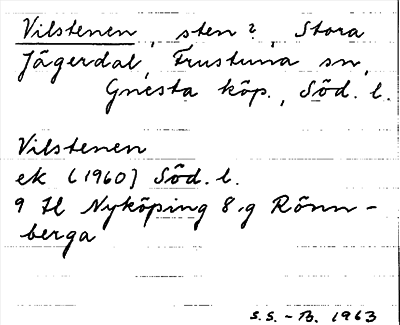 Vilstenen, sten?, Stora
Jägerdal, Frustuna sn,
Gnesta köp., Söd. l.
Vilstenen
ek (1960) Söd. l.
9 H Nyköping 8.g Rönn-
berga
S.S. - B. 1963